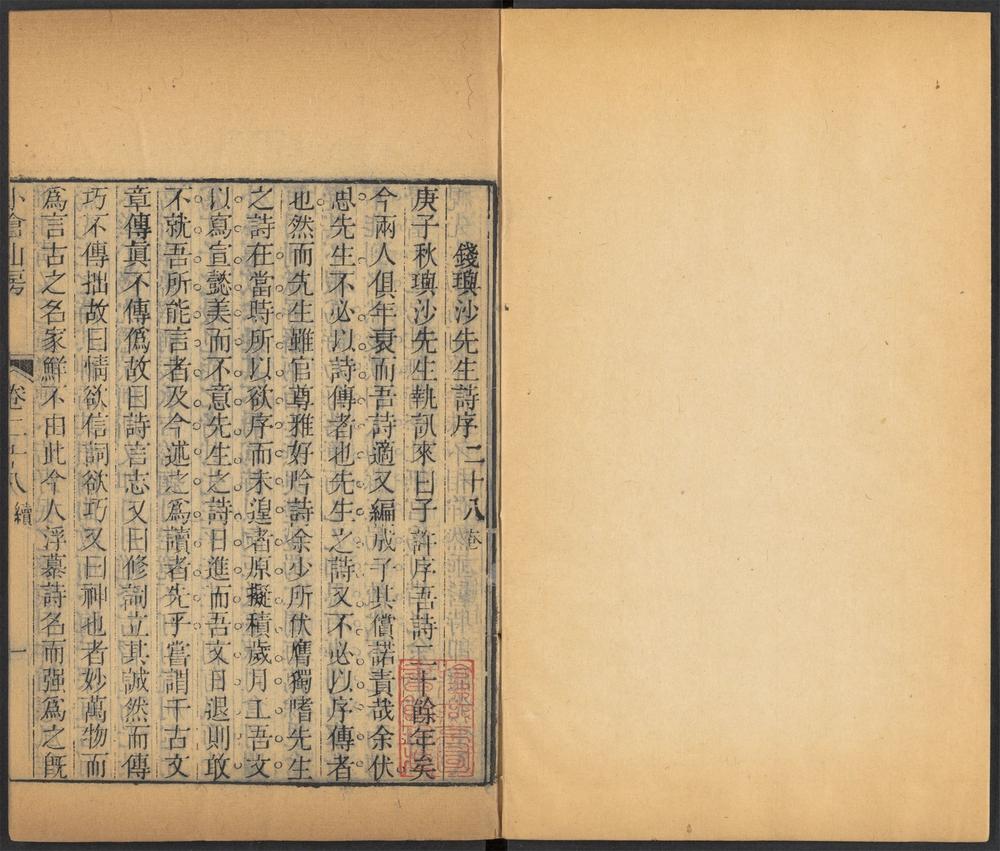 錢璵沙先生詩序 二十八 卷
庚子秋璵沙先生執訊來曰子許序吾詩二十餘年矣
今兩人俱年衰而吾詩適又編成子其償諾責哉余伏
思先生不必以詩傳者也先生之詩又不必以序傳者
也然而先生雖官尊雅好吟詩余少所伏膺獨嗜先生
之詩在當時所以欲序而未遑者原擬積歲月工吾文
以寫宣懿美而不意先生之詩日進而吾文日退則敢
不就吾所能言者及今述之爲讀者先乎嘗謂千古文
章傳眞不傳僞故曰詩言志又曰修詞立其誠然而傳
巧不傳拙故曰情欲信詞欲巧又曰神也者妙萬物而
爲言古之名家鮮不由此今人浮慕詩名而强爲之旣
小倉山房 卷二十八 續 一